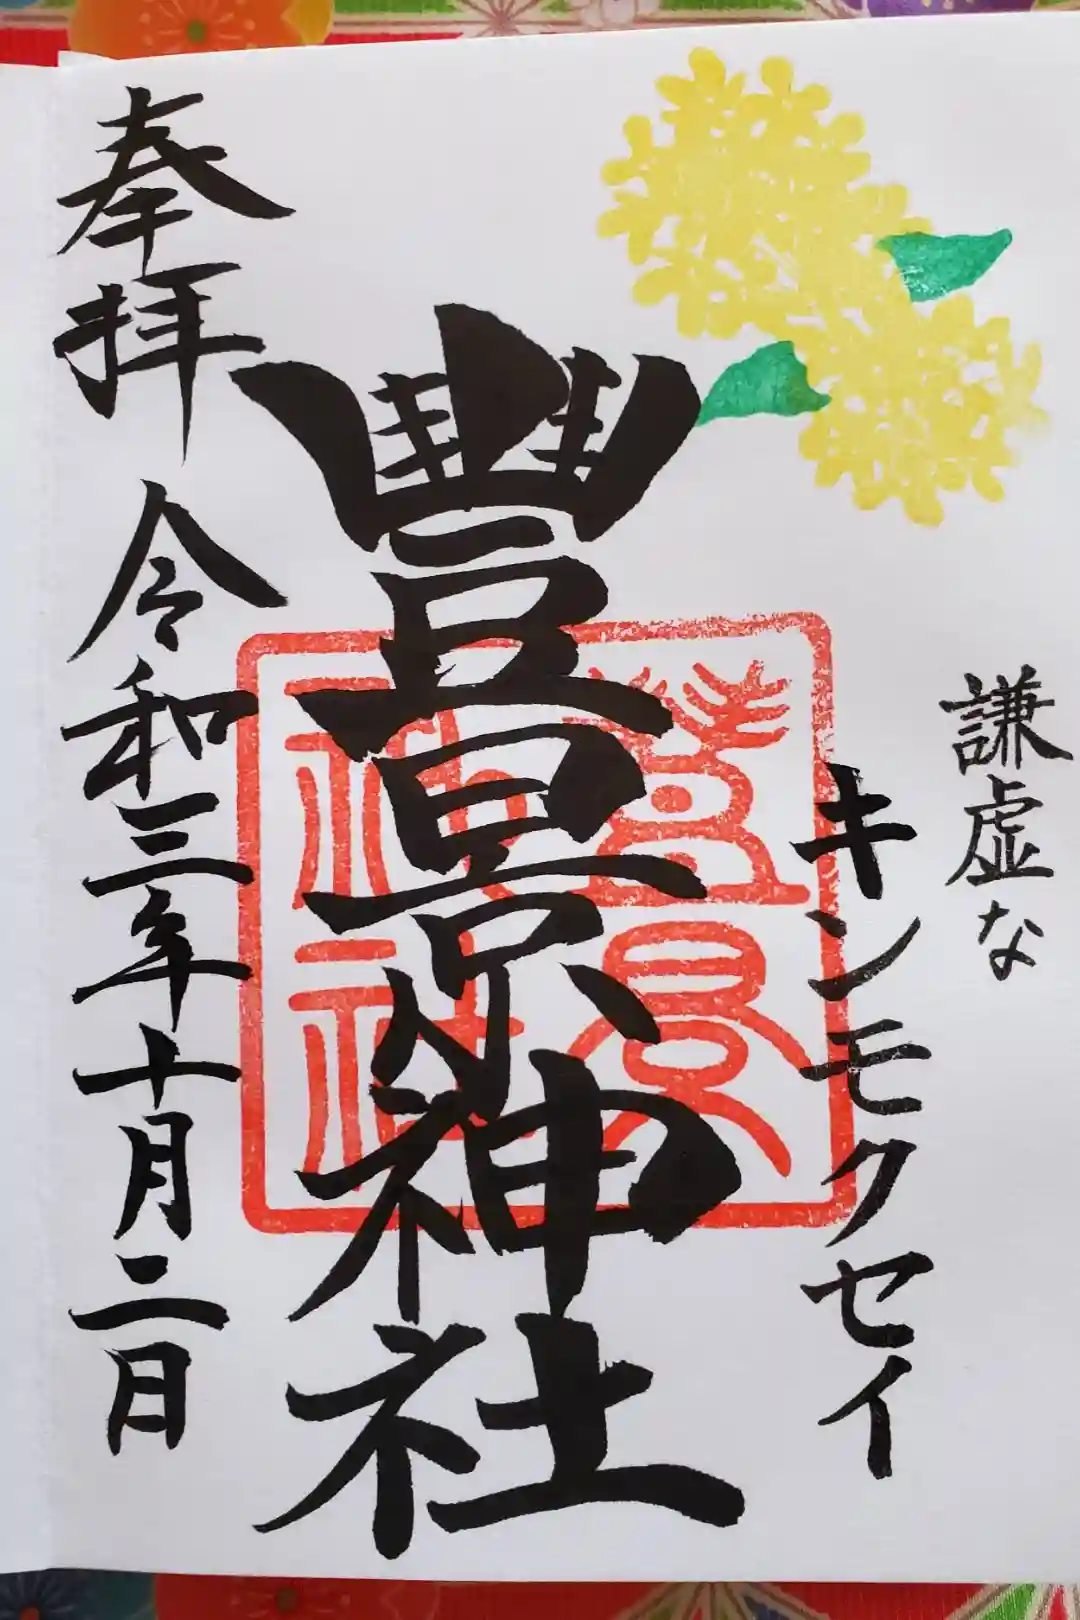 謙虚な
キンモクセイ
豐景神社
豐景
神社
奉拝 令和三年十月二日